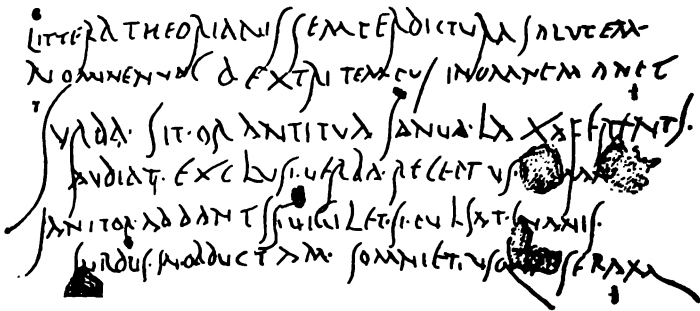 LITTERA THEORIANIS SEMPER DICTVRA SALVTEM
NOMINE NVNC DEXTRI TEMPVS IN OMNE MANET
SVRDA· SIT· ORANTI TVA IANVA· LAXA FERENTI·
AVDIAT· EXCLVSI· VERBA· RECEPTVS·
IANITOR· AD DANTIS VIGILET· SI PVLSAT· INANIS·
SVRDVS· IN OBDVCTAM· SOMNIET· VSQVE SERAM